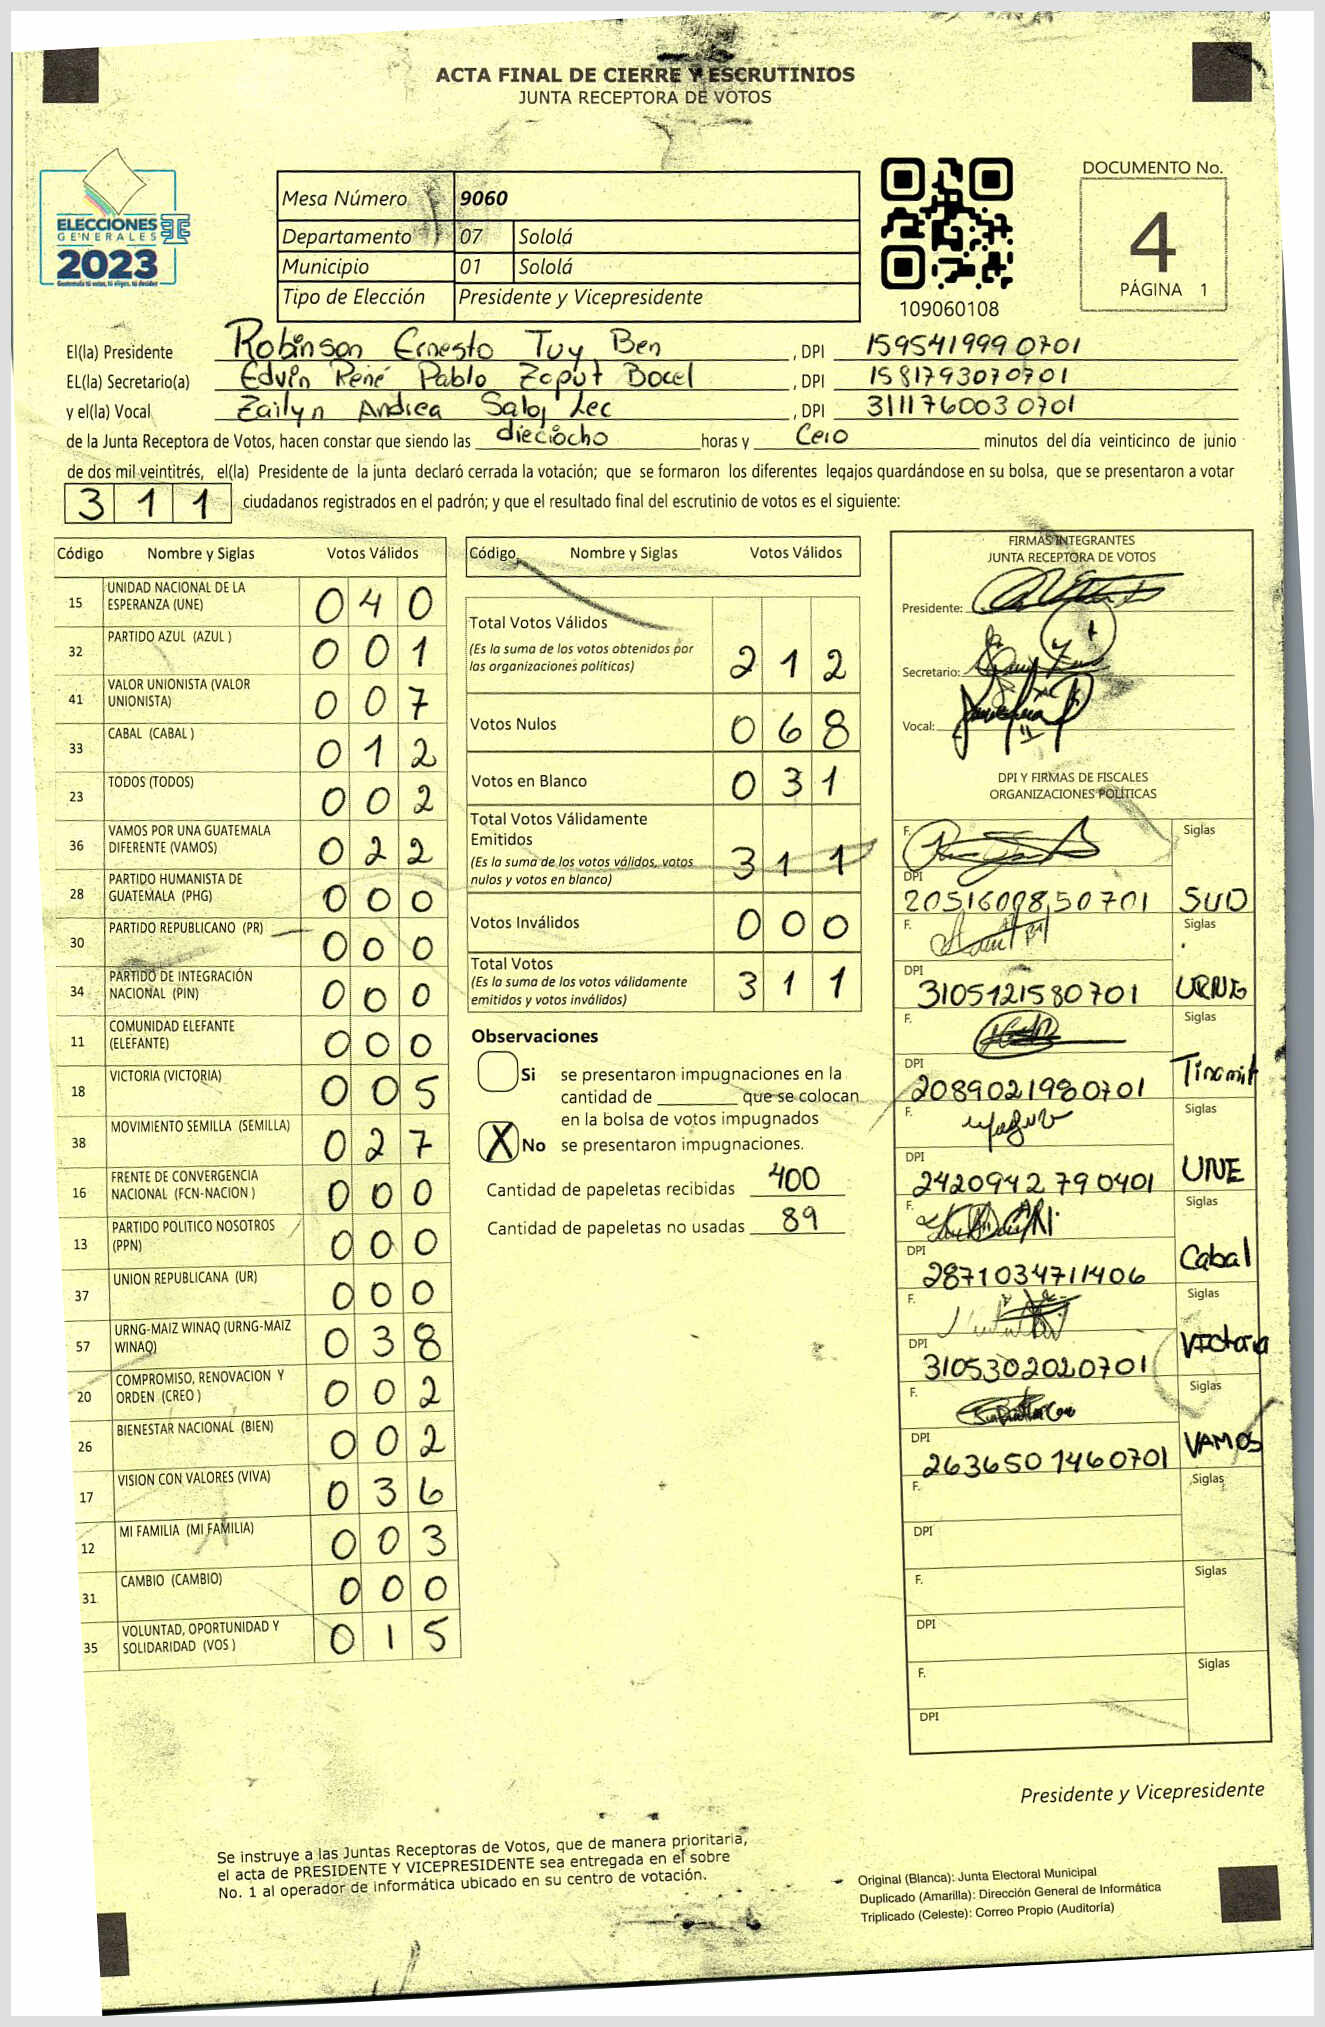 ACTA FINAL DE CIERRE Y ESCRUTINIOS
JUNTA RECEPTORA DE VOTOS
ELECCIONES
GENERALES
2023
Mesa Número 9060
Departamento 07 Sololá
Municipio 01 Sololá
Tipo de Elección Presidente y Vicepresidente
109060108
DOCUMENTO No.
4
PÁGINA 1
El(la) Presidente Robinson Ernesto Tuy Ben , DPI 159541999 0701
EL(la) Secretario(a) Edvin René Pablo Zoput Bocel , DPI 1581793070701
y el(la) Vocal Zailyn Andrea Saloj Lec , DPI 311176003 0701
de la Junta Receptora de Votos, hacen constar que siendo las dieciocho horas y Cero minutos del día veinticinco de junio
de dos mil veintitrés, el(la) Presidente de la junta declaró cerrada la votación; que se formaron los diferentes legajos quardándose en su bolsa, que se presentaron a votar
311 ciudadanos registrados en el padrón; y que el resultado final del escrutinio de votos es el siguiente:
Código Nombre y Siglas Votos Válidos
15 UNIDAD NACIONAL DE LA ESPERANZA (UNE) 040
32 PARTIDO AZUL (AZUL ) 001
41 VALOR UNIONISTA (VALOR UNIONISTA) 007
33 CABAL (CABAL ) 012
23 TODOS (TODOS) 002
36 VAMOS POR UNA GUATEMALA DIFERENTE (VAMOS) 022
28 PARTIDO HUMANISTA DE GUATEMALA (PHG) 000
30 PARTIDO REPUBLICANO (PR) 000
34 PARTIDO DE INTEGRACIÓN NACIONAL (PIN) 000
11 COMUNIDAD ELEFANTE (ELEFANTE) 000
18 VICTORIA (VICTORIA) 005
38 MOVIMIENTO SEMILLA (SEMILLA) 027
16 FRENTE DE CONVERGENCIA NACIONAL (FCN-NACION ) 000
13 PARTIDO POLITICO NOSOTROS (PPN) 000
37 UNION REPUBLICANA (UR) 000
57 URNG-MAIZ WINAQ (URNG-MAIZ WINAQ) 038
20 COMPROMISO, RENOVACION Y ORDEN (CREO ) 002
26 BIENESTAR NACIONAL (BIEN) 002
17 VISION CON VALORES (VIVA) 036
12 MI FAMILIA (MI FAMILIA) 003
31 CAMBIO (CAMBIO) 000
35 VOLUNTAD, OPORTUNIDAD Y SOLIDARIDAD (VOS ) 015
Código Nombre y Siglas Votos Válidos
Total Votos Válidos
(Es la suma de los votos obtenidos por
las organizaciones políticas) 212
Votos Nulos 068
Votos en Blanco 031
Total Votos Válidamente
Emitidos
(Es la suma de los votos válidos, votos
nulos y votos en blanco) 311
Votos Inválidos 000
Total Votos
(Es la suma de los votos válidamente
emitidos y votos inválidos) 311
Observaciones
Si se presentaron impugnaciones en la
cantidad de ________ que se colocan
en la bolsa de votos impugnados
X No se presentaron impugnaciones.
Cantidad de papeletas recibidas 400
Cantidad de papeletas no usadas 89
FIRMAS INTEGRANTES
JUNTA RECEPTORA DE VOTOS
Presidente:
Secretario:
Vocal:
DPI Y FIRMAS DE FISCALES
ORGANIZACIONES POLÍTICAS
F. Siglas
DPI 2051600850701 SUD
F. Siglas
DPI 3105121580701 URNG
F. Siglas
DPI 2089021980701 Tinamit
F. Siglas
DPI 2420942 790401 UNE
F. Siglas
DPI 2871034711406 Cabal
F. Siglas
DPI 3105302020701 Victoria
F. Siglas
DPI 263650 1460701 VAMOS
F. Siglas
DPI
F. Siglas
DPI
F. Siglas
DPI
Presidente y Vicepresidente
Se instruye a las Juntas Receptoras de Votos, que de manera prioritaria,
el acta de PRESIDENTE Y VICEPRESIDENTE sea entregada en el sobre
No. 1 al operador de informática ubicado en su centro de votación.
Original (Blanca): Junta Electoral Municipal
Duplicado (Amarilla): Dirección General de Informática
Triplicado (Celeste): Correo Propio (Auditoría)